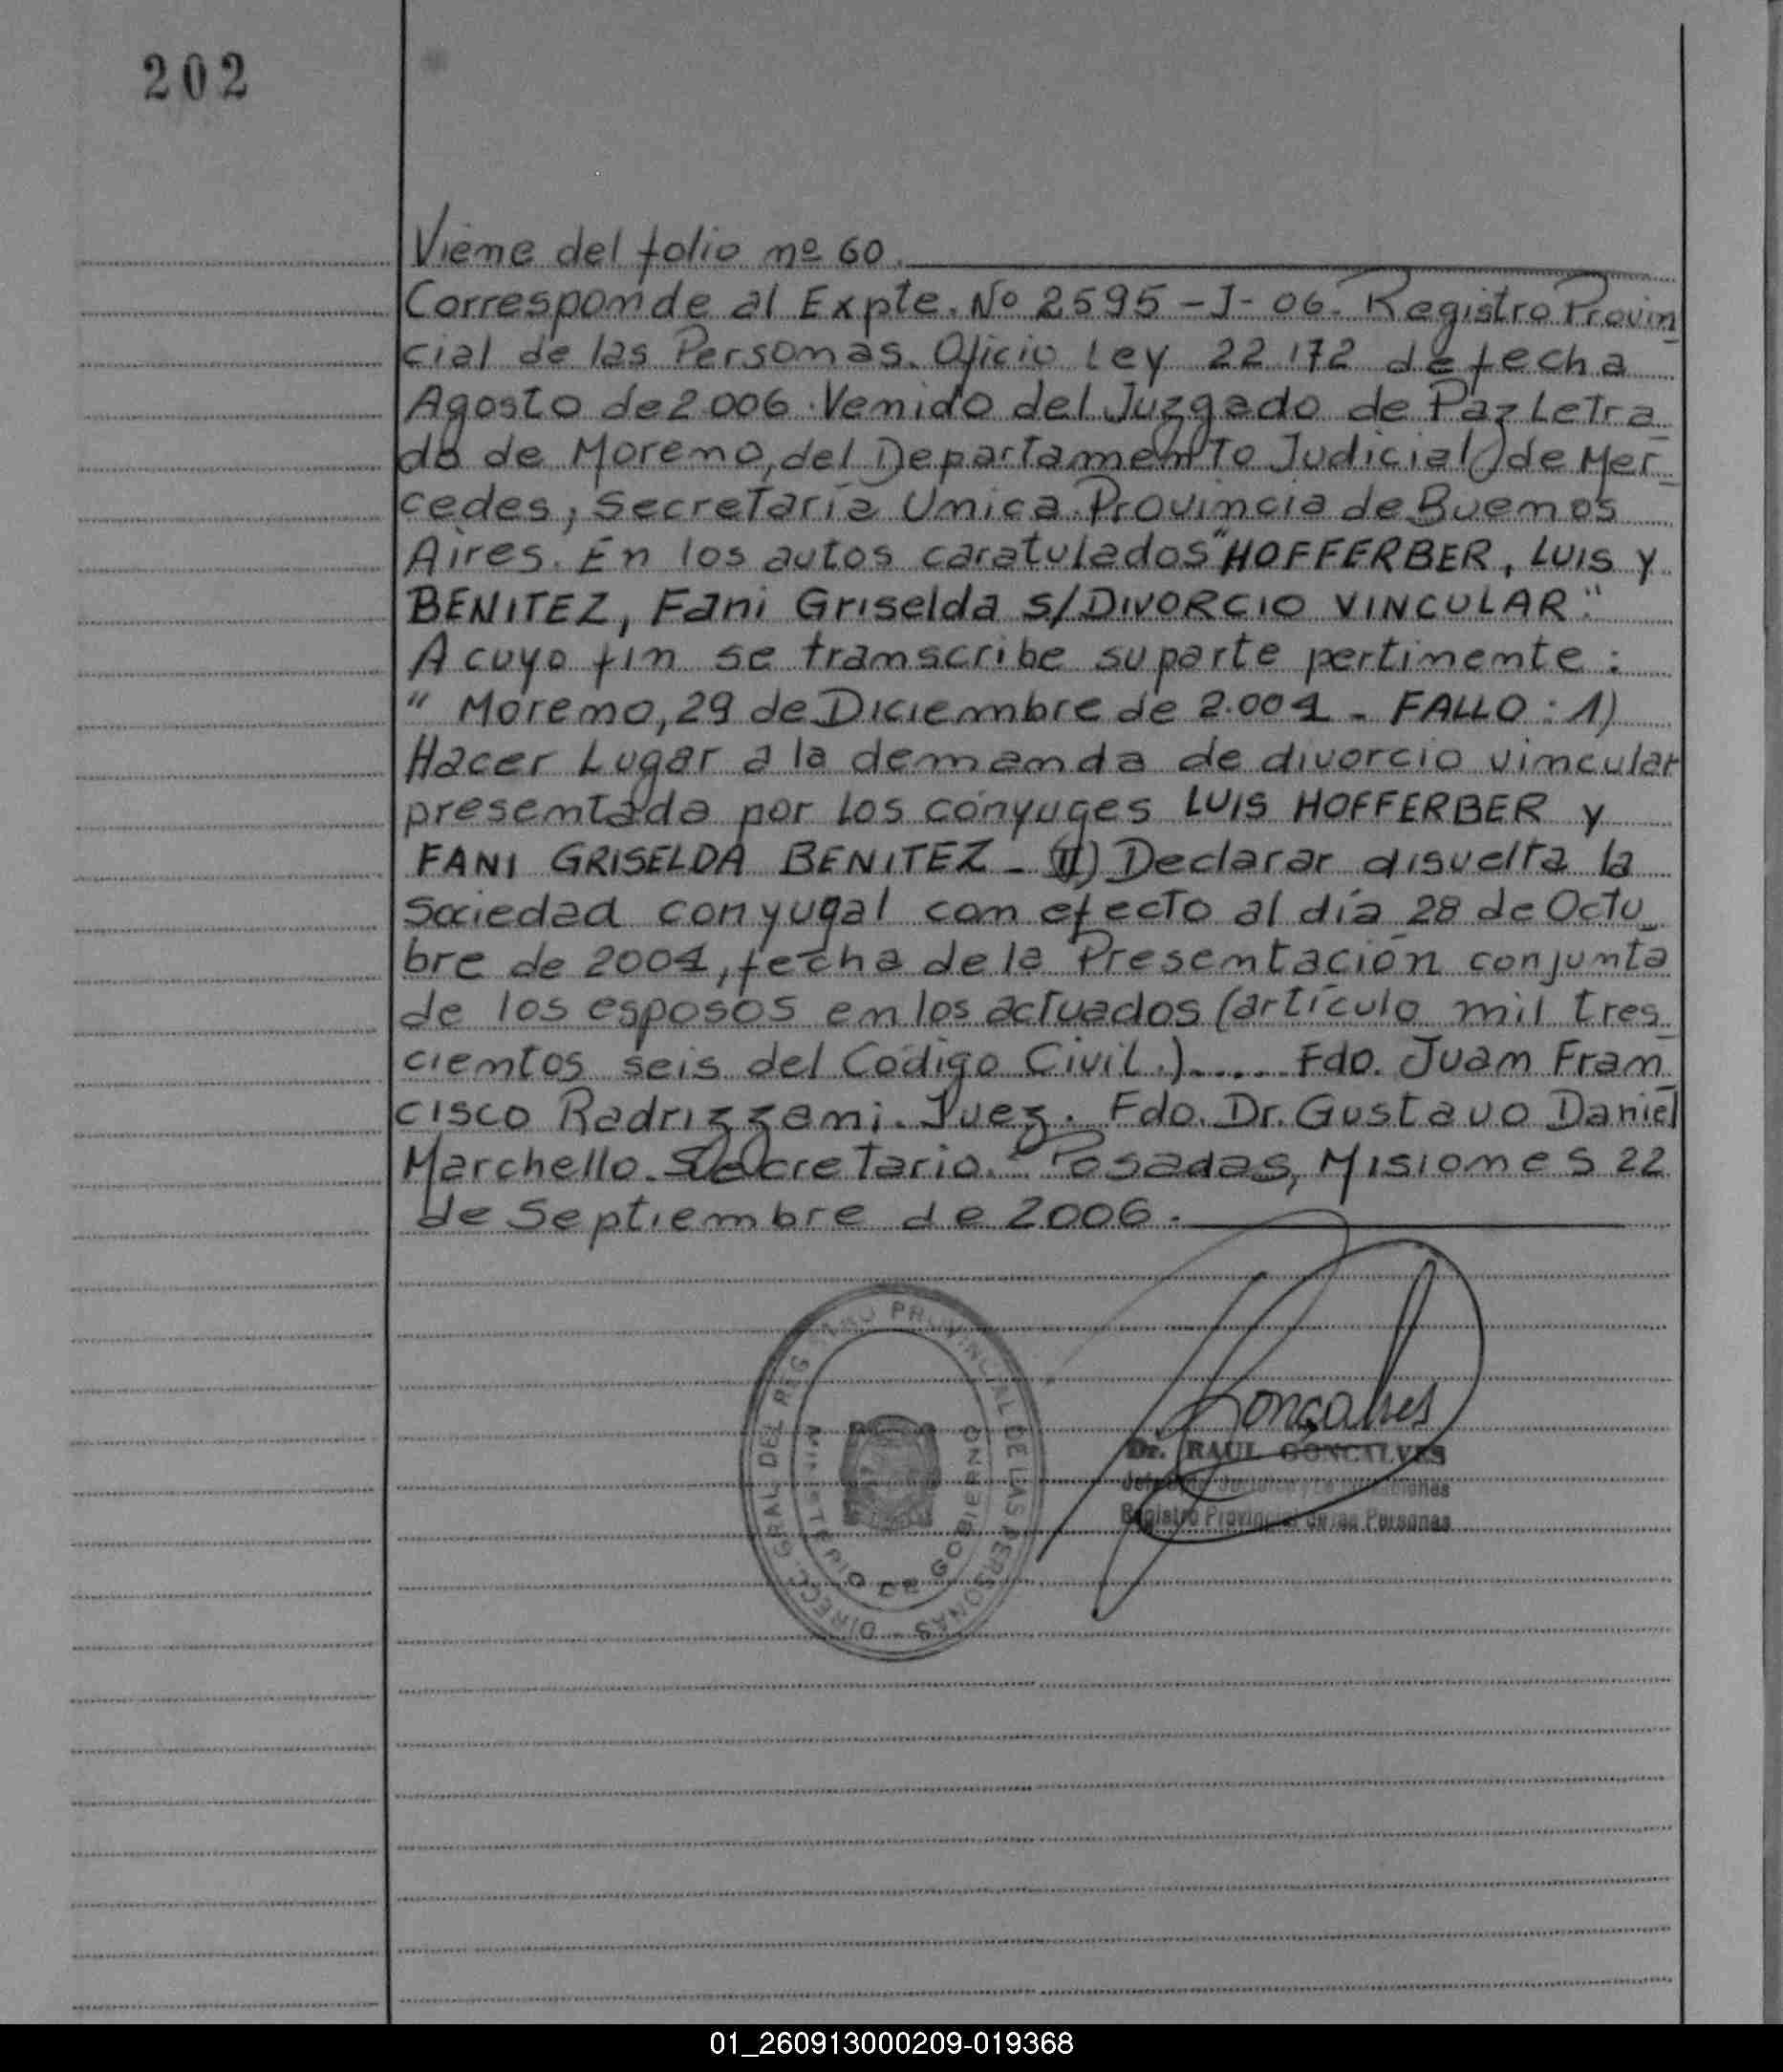 202
Viene del folio nº 60.
Corresponde al Expte. Nº 2595-J-06. Registro Provin
cial de las Personas. Oficio Ley 22172 de fecha
Agosto de 2006. Venido del Juzgado de Paz Letra
do de Moreno, del Departamento Judicial de Mer
cedes, Secretaría Unica. Provincia de Buenos
Aires. En los autos caratulados "HOFFERBER, LUIS y
BENITEZ, Fani Griselda S/DIVORCIO VINCULAR."
A cuyo fin se transcribe su parte pertinente:
" Moreno, 29 de Diciembre de 2.004 - FALLO: 1)
Hacer Lugar a la demanda de divorcio vincular
presentada por los cónyuges LUIS HOFFERBER y
FANI GRISELDA BENITEZ - II) Declarar disuelta la
Sociedad conyugal con efecto al día 28 de Octu
bre de 2004, fecha de la Presentación conjunta
de los esposos en los actuados (artículo mil tres
cientos seis del Código Civil.)..... Fdo. Juan Fran
cisco Radrizzani. Juez. Fdo. Dr. Gustavo Daniel
Marchello. Secretario.- Posadas, Misiones 22
de Septiembre de 2006.
DIRECC. GRAL. DEL REGISTRO PROVINCIAL DE LAS PERSONAS -
MINISTERIO DE GOBIERNO
Goncalves
Dr. RAUL GONCALVES
Registro Provincial de las Personas
01_260913000209-019368